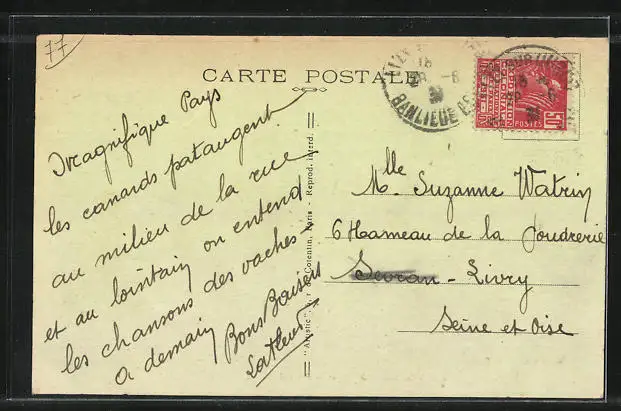 77
CARTE POSTALE
Magnifique Pays
les canards pataugent
au milieu de la rue
et au lointain on entend
les chansons des vaches
a demain Bons Baisers
"Artistic" Corentin, Paris - Reprod. interd.
BANLIEUE
50c
POSTES
Mlle Suzanne Watrin
6 Hameau de la Poudrerie
Sevran - Livry
Seine et Oise